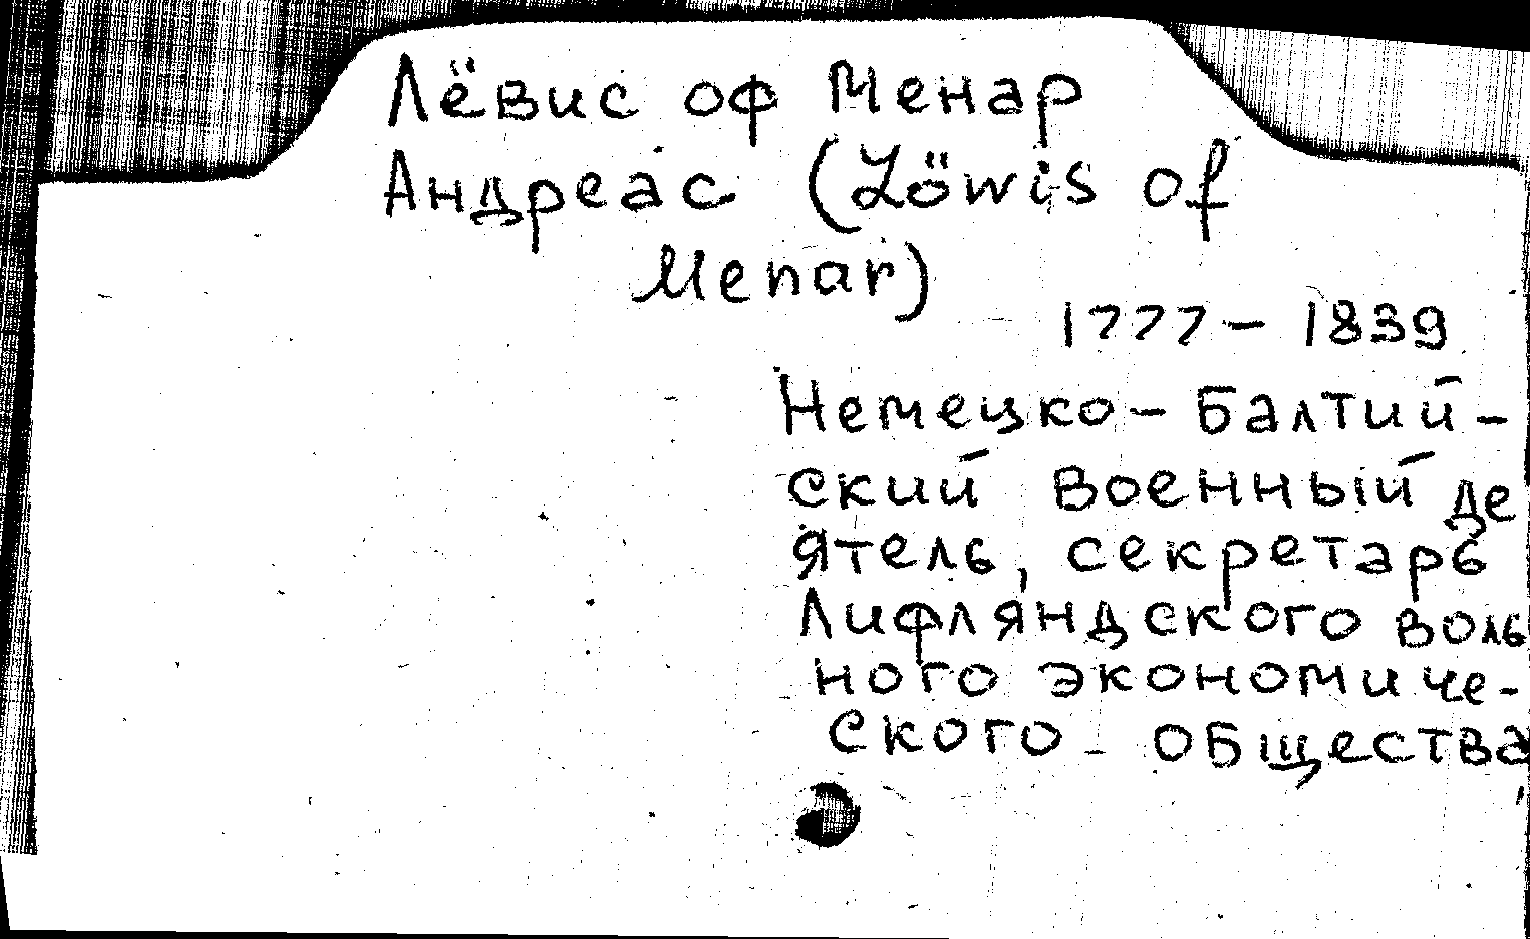 Лёвис оф Менар
Андреас (Löwis of
Menar)
1777 - 1839
Немецко - Балтий -
ский военный де
ятель, секретарь
Лифляндского воль
ного экономиче -
ского - общества,